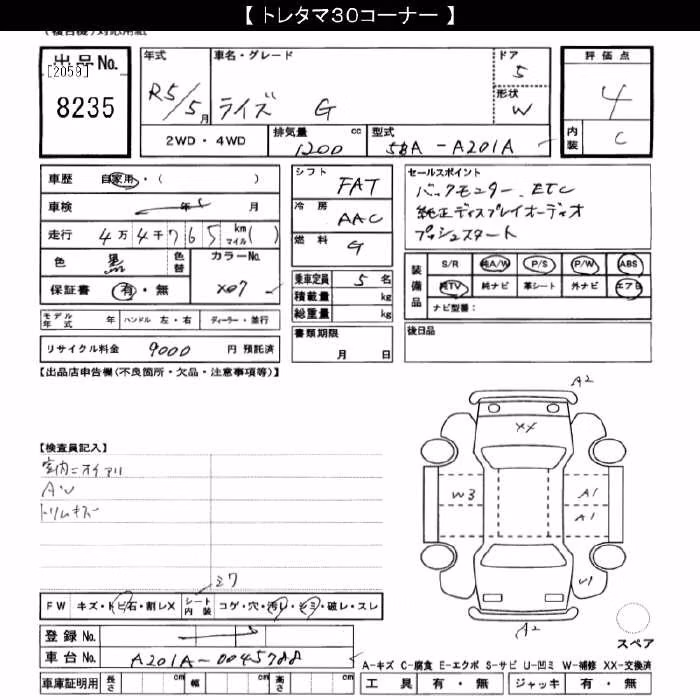 【 トレタマ３０コーナー 】
出品No.
[2059]
8235
年式
R5/5月
車名・グレード
ライズ G
ドア
5
形状
W
評価点
4
内装
C
2WD・4WD
排気量 cc
1200
型式
5BA-A201A
車歴 自家用・( )
車検 年 月
走行 4万4千765 km マイル( )
色 黒 色替 カラーNo. X07
保証書 有・無
モデル年式 年 ハンドル 左・右 ディーラー・並行
リサイクル料金 9000 円 預託済
シフト FAT
冷房 AAC
燃料 G
乗車定員 5 名
積載量 kg
総重量 kg
書類期限
月 日
セールスポイント
バックモニター、ETC
純正ディスプレイオーディオ
プッシュスタート
装備品
S/R 純A/W P/S P/W ABS
純TV 純ナビ 革シート 外ナビ エアB
ナビ型番：
後日品
【出品店申告欄(不良箇所・欠品・注意事項等)】
【検査員記入】
室内ニオイアリ
AW
トリムキズ
ミワ
FW キズ・トビ石・割レX シート内装 コゲ・穴・汚レ・シミ・破レ・スレ
登録No.
車台No. A201A-0045788
車庫証明用 長さ cm 幅 cm 高さ cm
A2
XX
W3
A1
A1
U1
A2
スペア
A-キズ C-腐食 E-エクボ S-サビ U-凹ミ W-補修 XX-交換済
工具 有・無 ジャッキ 有・無